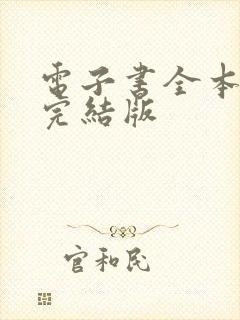 電子書全本
完結版
官和民